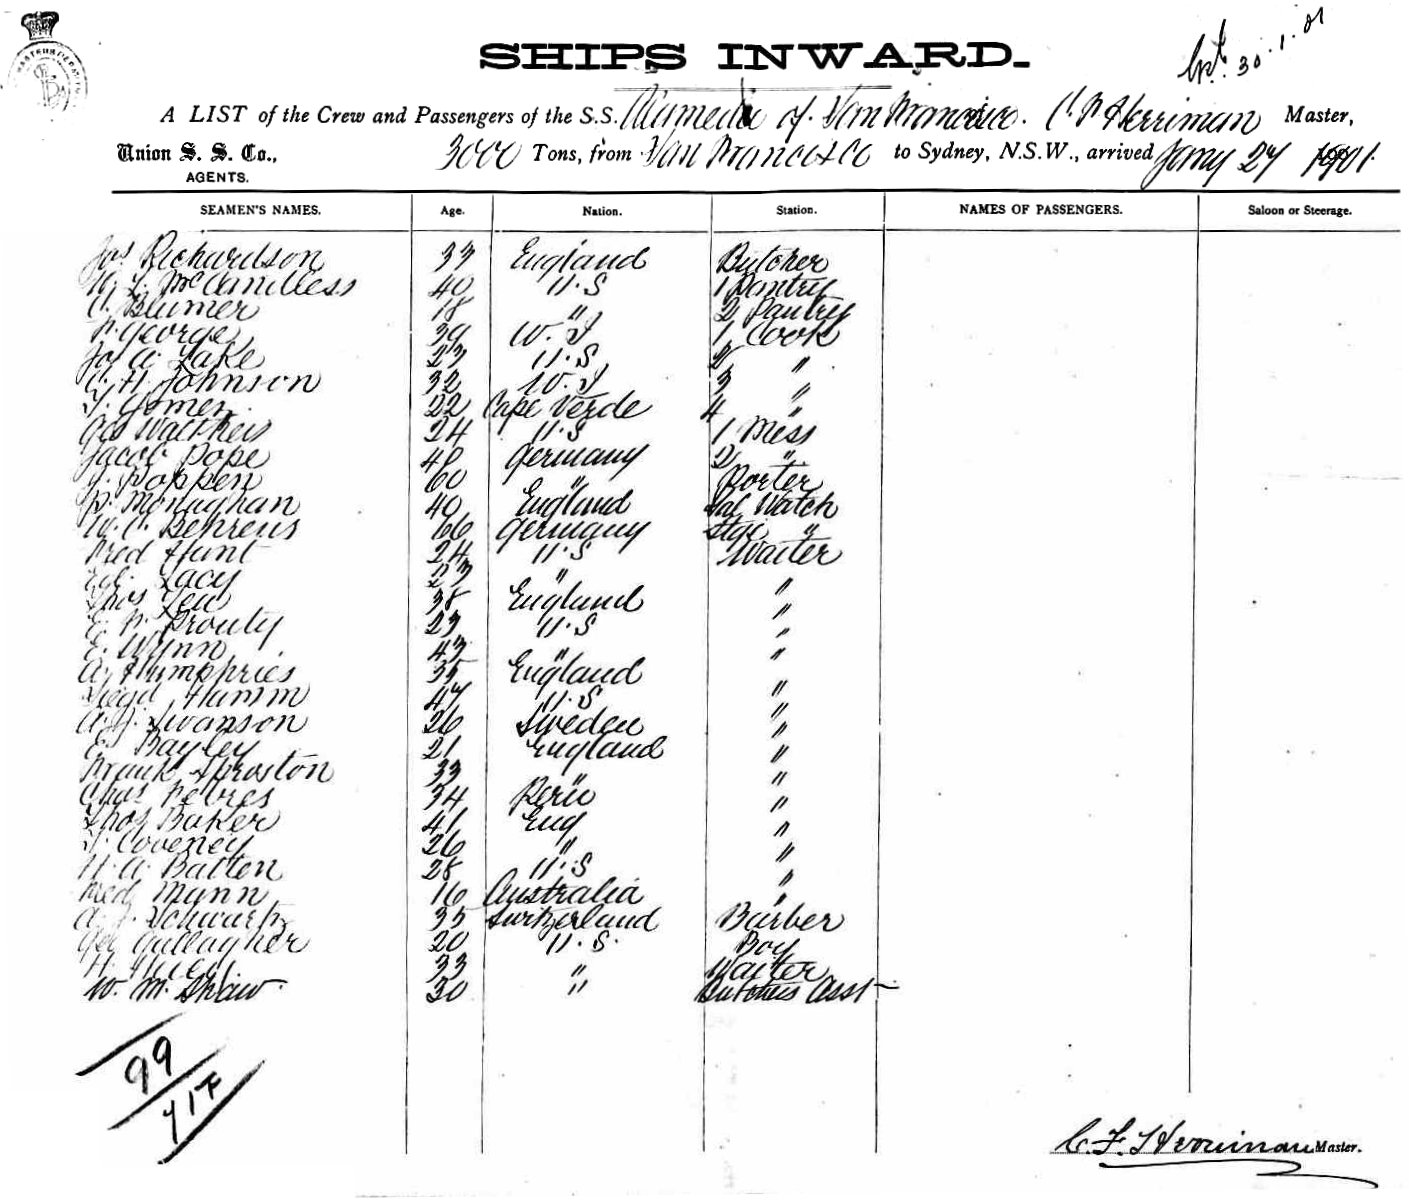 30.1.01
SHIPS INWARD.
A LIST of the Crew and Passengers of the S.S. Alameda of San Francisco. C. F. Herriman Master,
Union S. S. Co., 3000 Tons, from San Francisco to Sydney, N.S.W., arrived Jany 27 1901.
AGENTS.
SEAMEN'S NAMES. Age. Nation. Station. NAMES OF PASSENGERS. Saloon or Steerage.
Jos Richardson 33 England Butcher
McCandless 40 U.S 1 Pantry
C. Blumer 18 " 2 Pantry
F. George 39 W. I 1 Cook
Jos A. Lake 23 U.S 2 "
C. H. Johnson 32 W. I 3 "
Gomen 22 Cape Verde 4 "
Geo Walther 24 U.S 1 Mess
Jacob Pope 48 Germany 2 "
Poppen 60 " Porter
P. Monaghan 40 England Sal Watch
W. C. Behrens 66 Germany Stge "
Fred Hunt 24 U.S Waiter
Lacy 23 " "
Thos Lea 38 England "
E. F. Prouty 23 U.S "
E. Wynn 43 " "
A. Humphries 35 England "
Hamm 47 U.S "
A. J. Swanson 26 Sweden "
E. Bayley 21 England "
Frank Sproston 33 " "
Chas Febres 34 Peru "
Thos Baker 41 Eng "
T. Coveney 26 " "
H. A. Batten 28 U.S "
Fred Mann 16 Australia "
Schwartz 35 Switzerland Barber
Geo Gallagher 20 U.S. Boy
H. 33 " Waiter
W. M. Shaw 30 " Butchers Asst
99
C. F. Herriman Master.